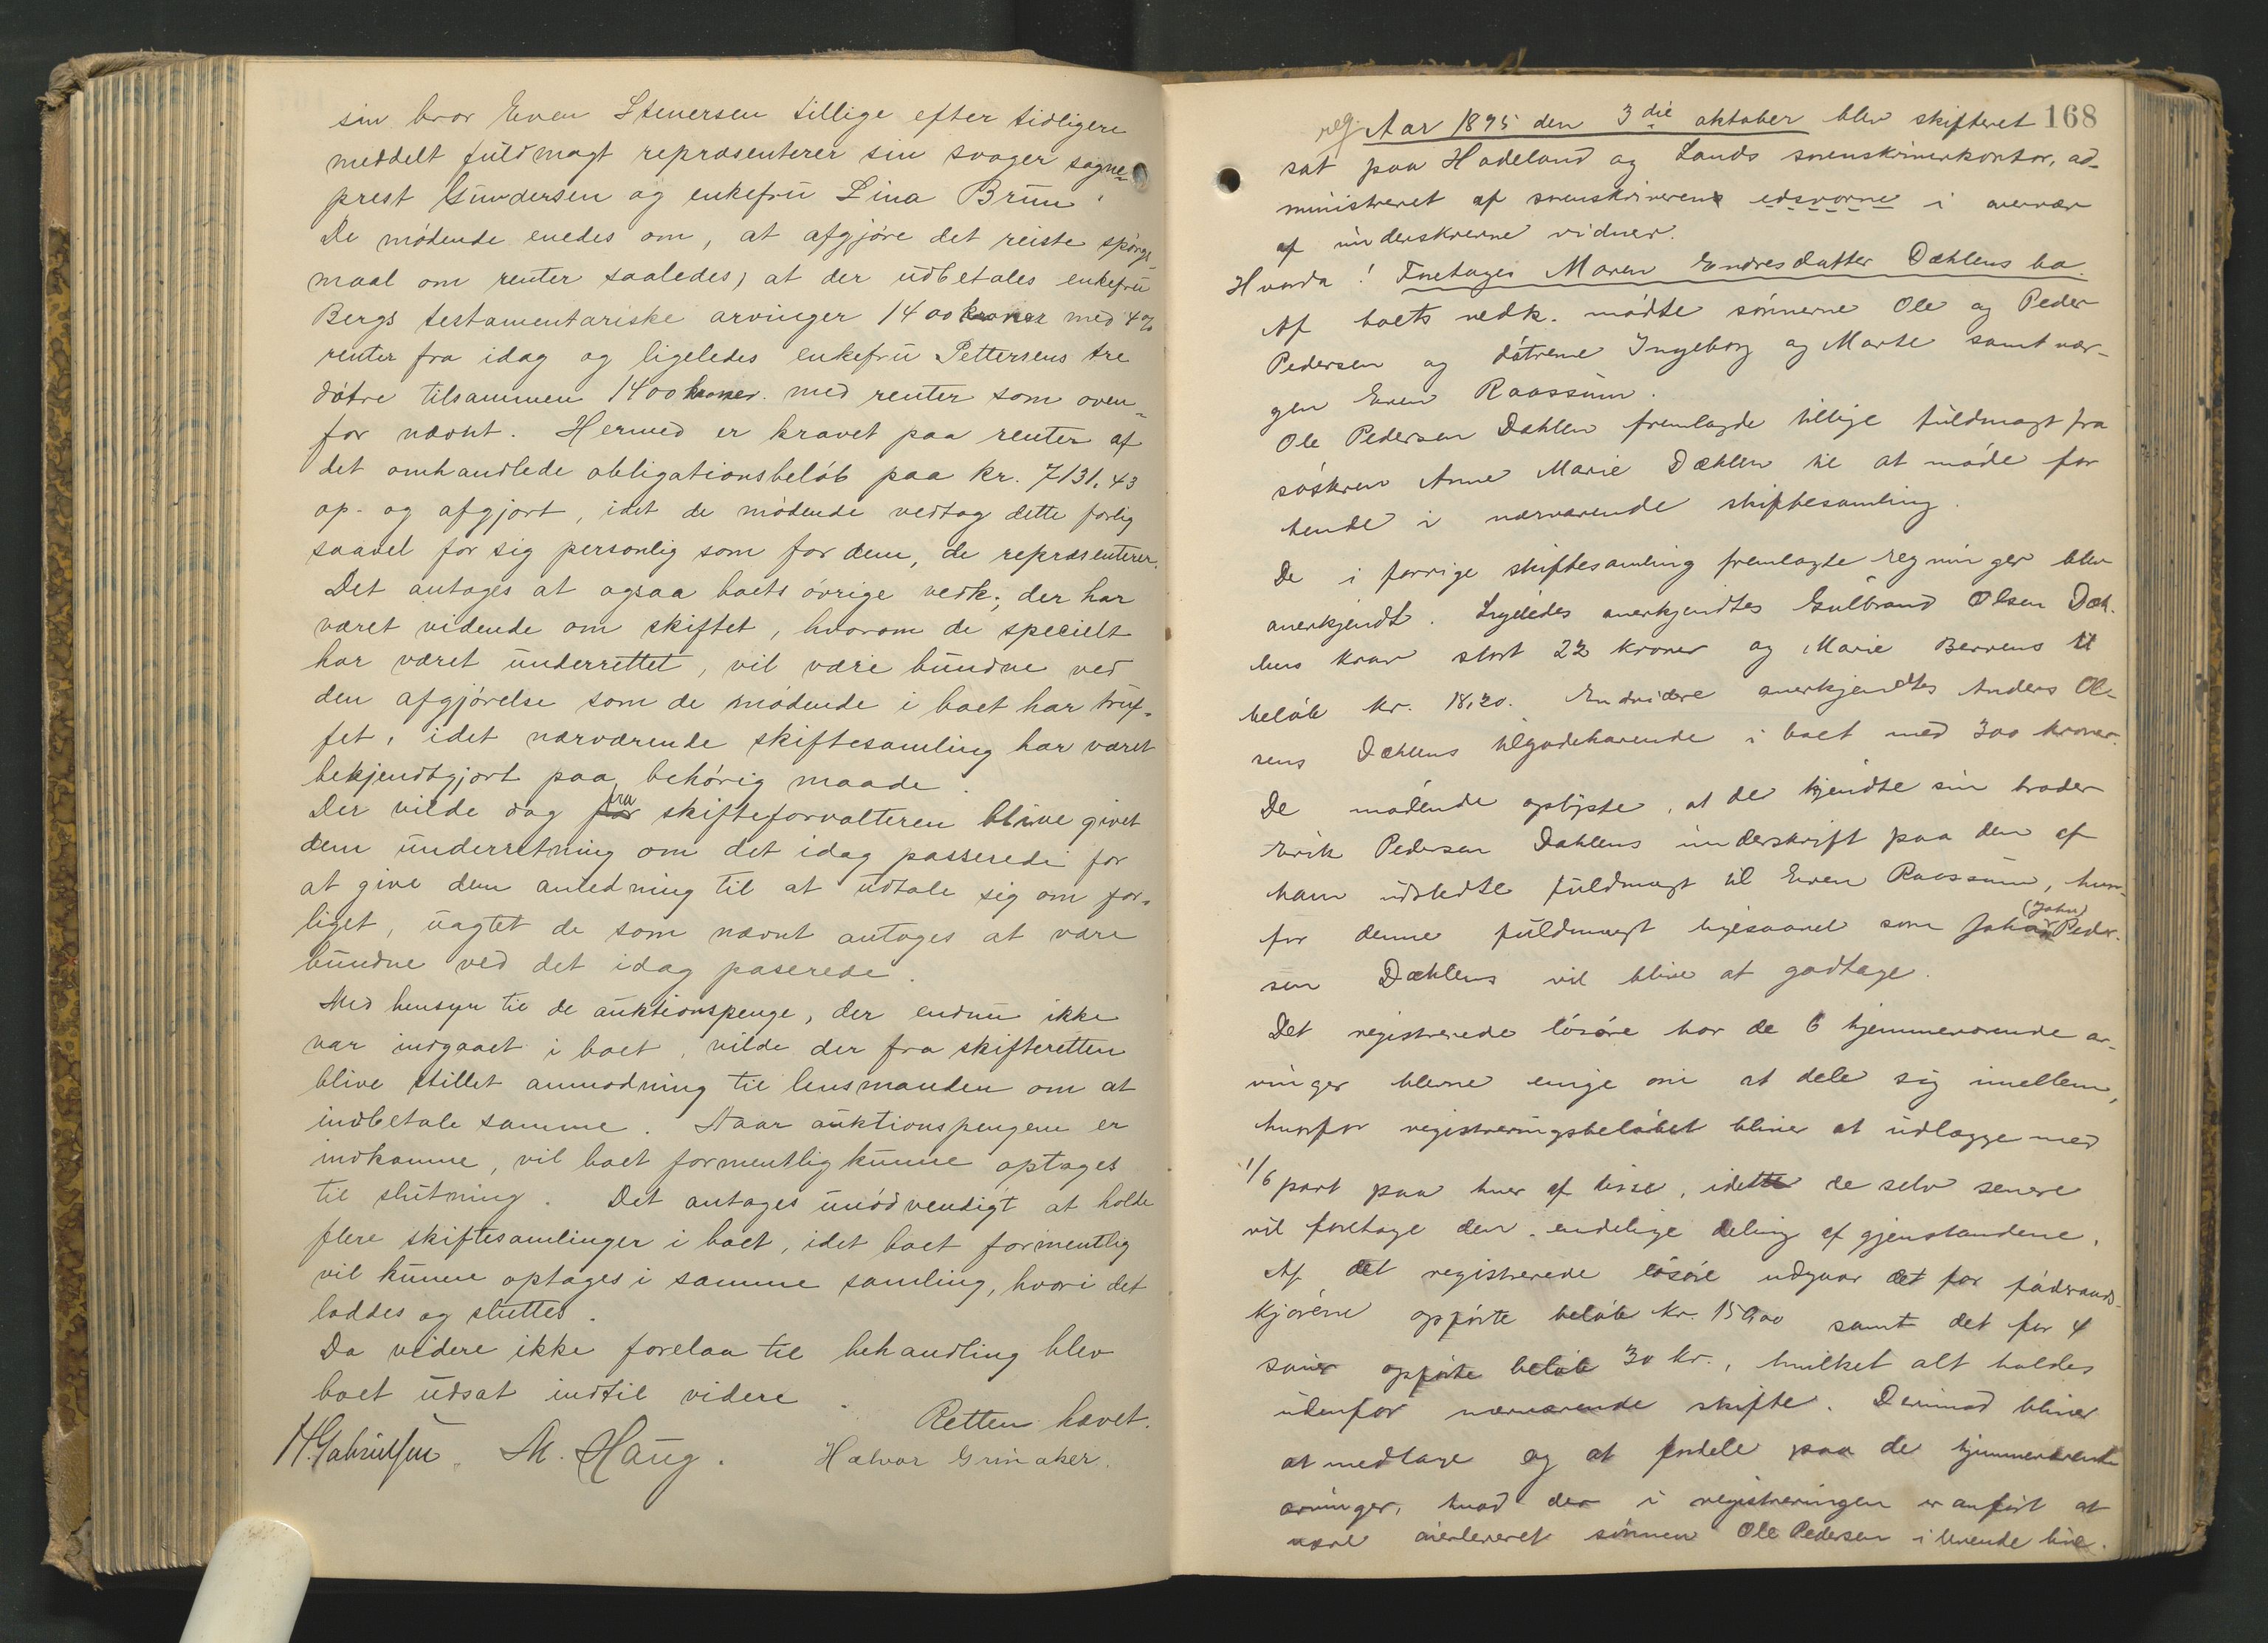 sin bror Even Stenersen tillige efter tidligere
meddelt fuldmagt repræsenterer sin svoger sogne-
prest Gundersen og enkefru Lina Bruun.
De mødende enedes om, at afgjøre det reiste spørgs-
maal om renter saaledes, at der udbetales enkefru
Bergs testamentariske arvinger 1400 kroner med 4%
renter fra idag og ligeledes enkefru Pettersens tre
døtre tilsammen 1400 kroner med renter som oven-
for nævnt. Hermed er kravet paa renter af
det omhandlede obligationsbeløb paa kr. 7131,43
op- og afgjort, idet de mødende vedtog dette forlig
saavel for sig personlig som for dem, de repræsenterer.
Det antages at ogsaa boets øvrige vedk., der har
været vidende om skiftet, hvorom de specielt
har været underrettet, vil være bundne ved
den afgjørelse som de mødende i boet har truf-
fet, idet nærværende skiftesamling har været
bekjendtgjort paa behørig maade.
Der vilde dog fra skifteforvalteren blive givet
dem underretning om det idag passerede for
at give dem anledning til at udtale sig om for-
liget, uagtet de som nævnt antages at være
bundne ved det idag paserede.
Med hensyn til de auktionspenge, der endnu ikke
var indgaaet i boet, vilde der fra skifteretten
blive stillet anmodning til lensmanden om at
indbetale samme. Naar auktionspengene er
indkomne, vil boet formentlig kunne optages
til slutning. Det antages unødvendigt at holde
flere skiftesamlinger i boet, idet boet formentlig
vil kunne optages i samme samling, hvori det
loddes og sluttes.
Da videre ikke forelaa til behandling blev
boet udsat indtil videre.
Retten hævet.
H. Gabrielsen. M. Haug. Halvor Grinaker.
168
reg. Aar 1895 den 3die oktober blev skifteret
sat paa Hadeland og Lands sorenskriverkontor, ad-
ministreret af sorenskriverens edsvorne i overvær
af underskrevne vidner.
Hvorda! Foretages Maren Endresdatter Dæhlens bo.
Af boets vedk. mødte sønnerne Ole og Peder
Pedersen og døtrene Ingeborg og Marte samt vær-
gen Even Raassum.
Ole Pedersen Dæhlen fremlagde tillige fuldmagt fra
søskren Anne Marie Dæhlen til at møde for
hende i nærværende skiftesamling.
De i forrige skiftesamling fremlagte regninger blev
anerkjendt. Ligeledes anerkjendtes Gulbrand Olsen Dæh-
lens krav stort 22 kroner og Marie Berrens til
beløb kr. 18,20. Endvidere anerkjendtes Anders Ol-
sens Dæhlens tilgodehavende i boet med 300 kroner.
De mødende oplyste, at de kjendte sin broder
Erik Pedersen Dæhlens underskrift paa den af
ham udstedte fuldmagt til Even Raassum, hvor-
for denne fuldmagt ligesaavel som Johan (John) Peder-
sen Dæhlens vil blive at godtage.
Det registrerede løsøre har de 6 hjemmeværende ar-
vinger blevne enige om at dele sig imellem,
hvorfor registreringsbeløbet bliver at udlægge med
1/6 part paa hver af disse, idet de selv senere
vil foretage den endelige deling af gjenstandene.
Af det registrerede løsøre udgaar det for fødraads-
kjørene opførte beløb kr. 150,00 samt det for 4
sauer opførte beløb 30 kr., hvilket alt holdes
udenfor nærværende skifte. Derimod bliver
at medtage og at fordele paa de hjemmeværende
arvinger, hvad der i registreringen er anført at
være overleveret sønnen Ole Pedersen i levende live.